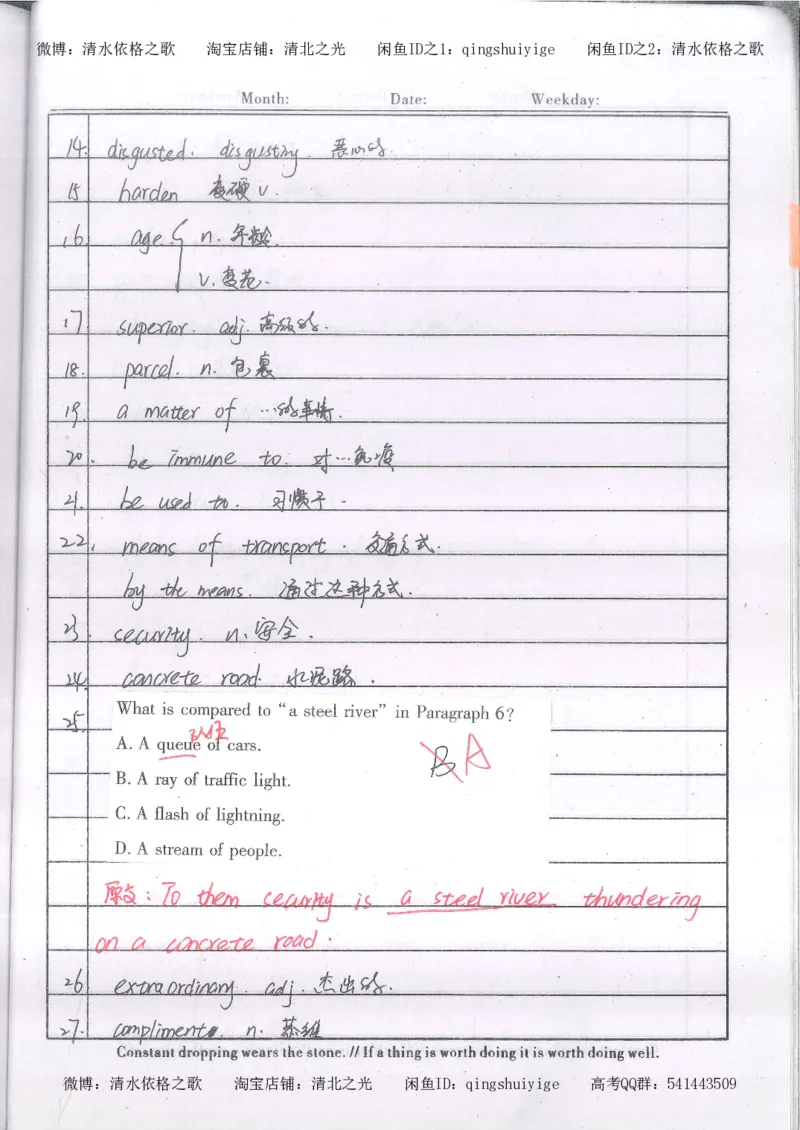 微博：清水依格之歌 淘宝店铺：清北之光 闲鱼ID之1：qingshuiyige 闲鱼ID之2：清水依格之歌
Month: Date: Weekday:
14. disgusted. disgusting. 恶心的.
15 harden 变硬 v.
16. age { n. 年龄.
v. 变老.
17. superior. adj. 高级的.
18. parcel. n. 包裹
19. a matter of …的事情.
20. be immune to. 对…免疫
21. be used to. 习惯于.
22. means of transport. 交通方式.
by the means. 通过这种方式.
23. security. n. 安全.
24. concrete road. 水泥路.
25. What is compared to “a steel river” in Paragraph 6?
队伍
A. A queue of cars.
B A
B. A ray of traffic light.
C. A flash of lightning.
D. A stream of people.
原文: To them security is a steel river thundering
on a concrete road.
26 extraordinary. adj. 杰出的.
27. compliments. n. 恭维
Constant dropping wears the stone. // If a thing is worth doing it is worth doing well.
微博：清水依格之歌 淘宝店铺：清北之光 闲鱼ID：qingshuiyige 高考QQ群：541443509